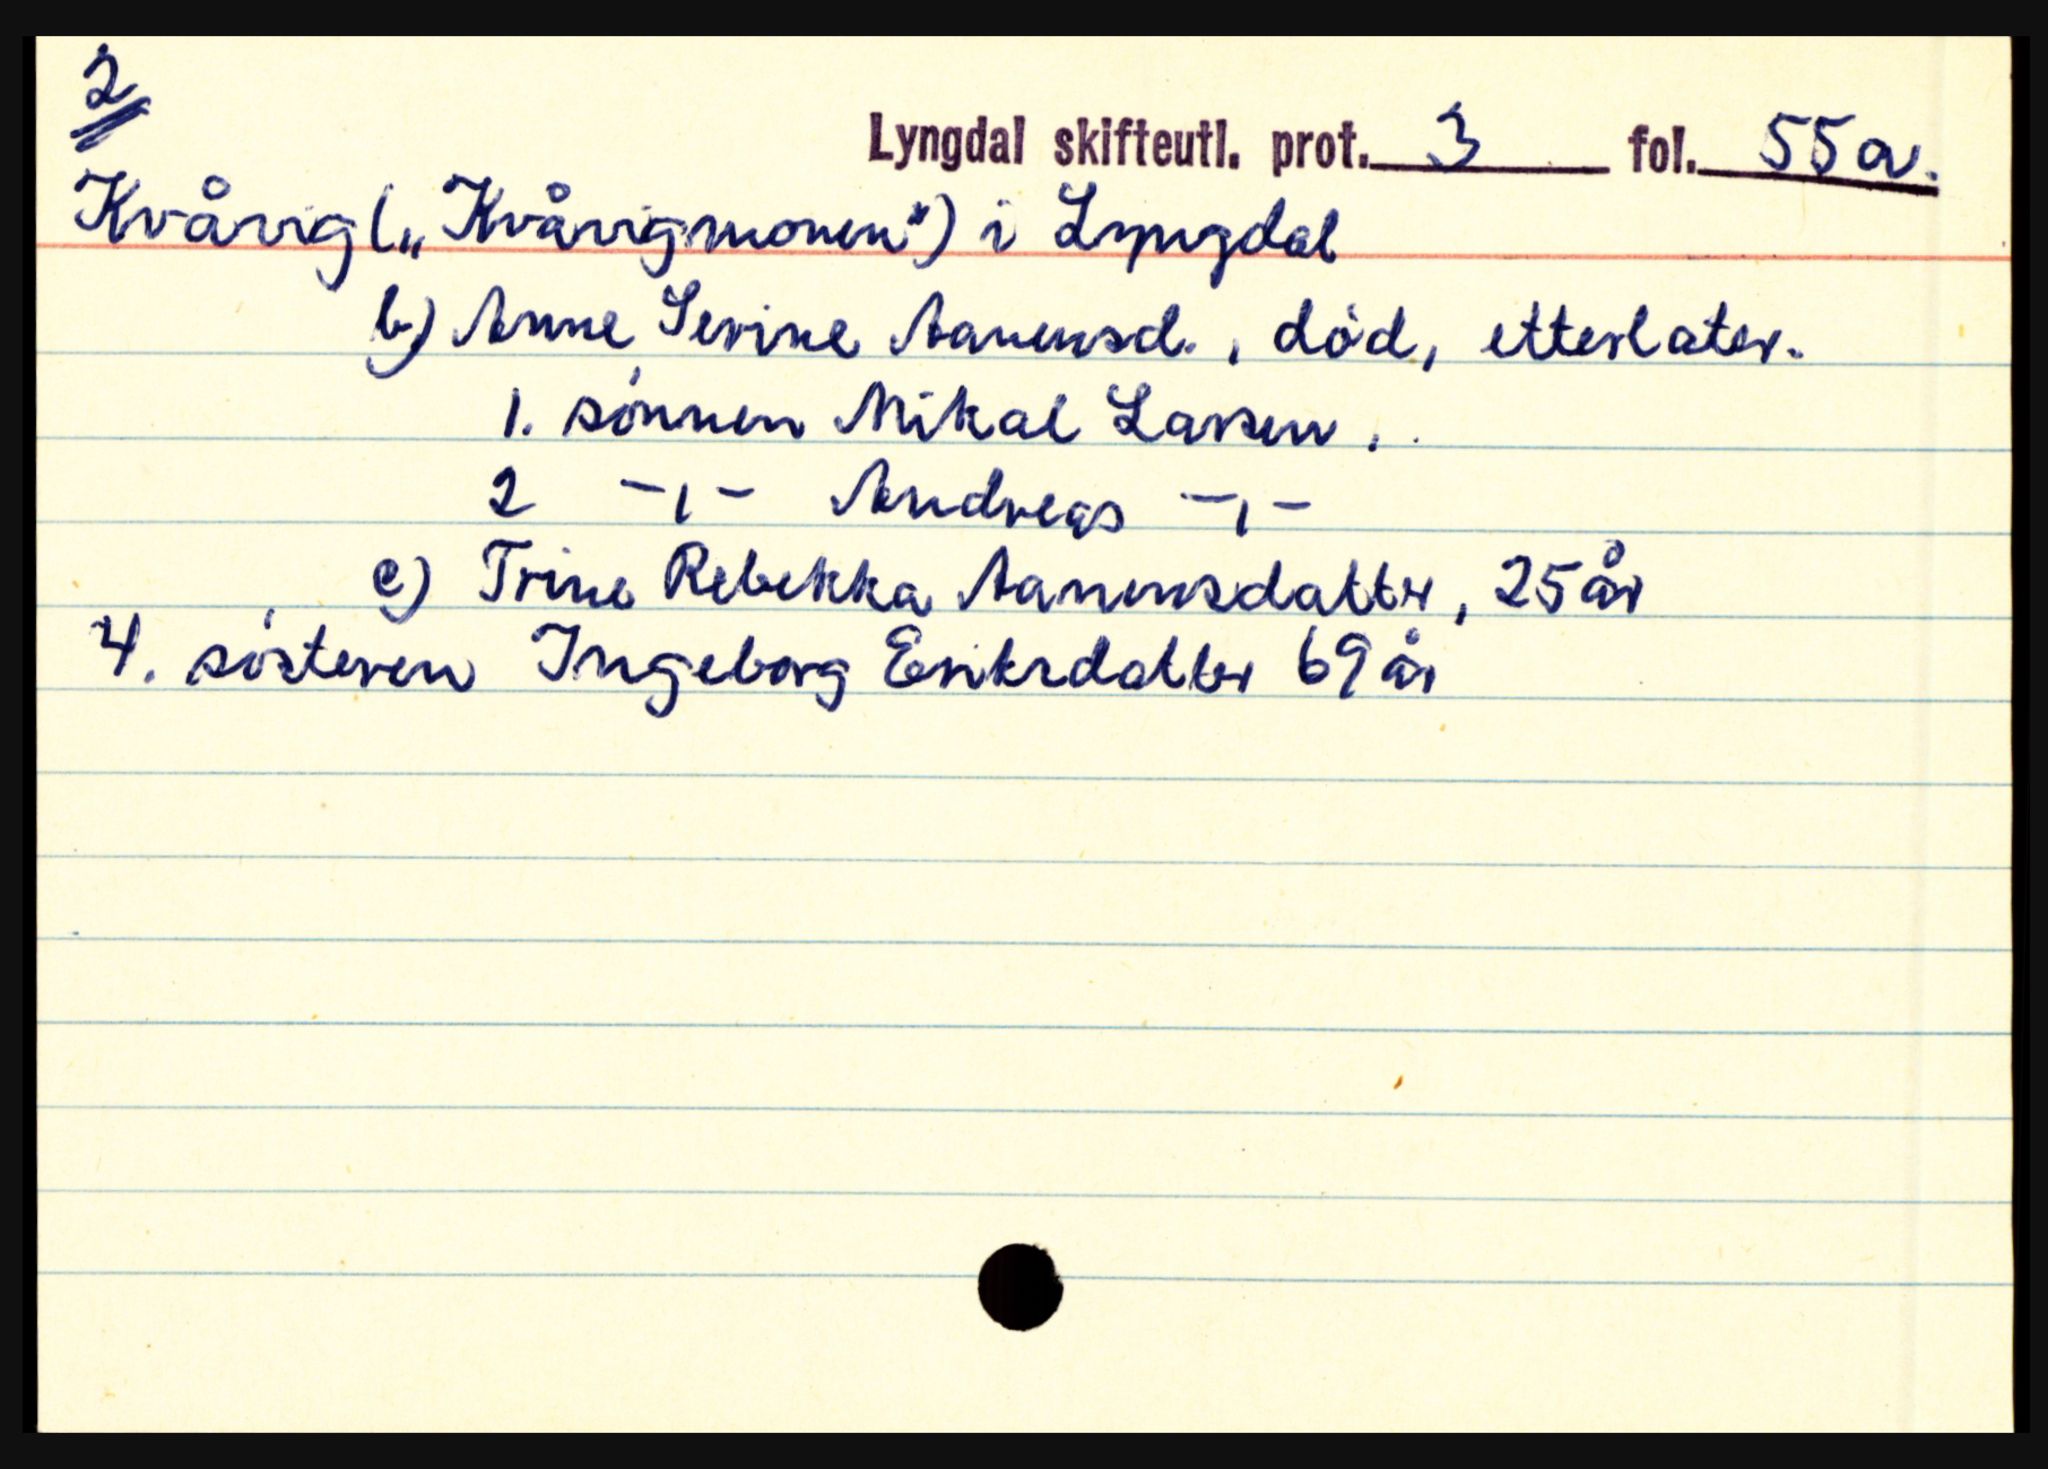 2
Lyngdal skifteutl. prot. 3 fol. 55a.
Kvåvig („Kvåvigmonen") i Lyngdal
b) Anne Serine Aanensd., død, etterlater.
1. sønnen Mikal Larsen,
2 -,,- Andreas -,,-
c) Trine Rebekka Aanensdatter, 25 år
4. søsteren Ingeborg Eriksdatter 69 år